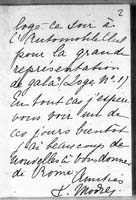 2
loge ce soir à
l'Automobile Club
pour la grande
représentation
de gala (Loge No 1)
En tout cas j'espère
vous voir un de
ces jours bientôt
j'ai beaucoup de
nouvelles à vous donner
de Rome Amitiés